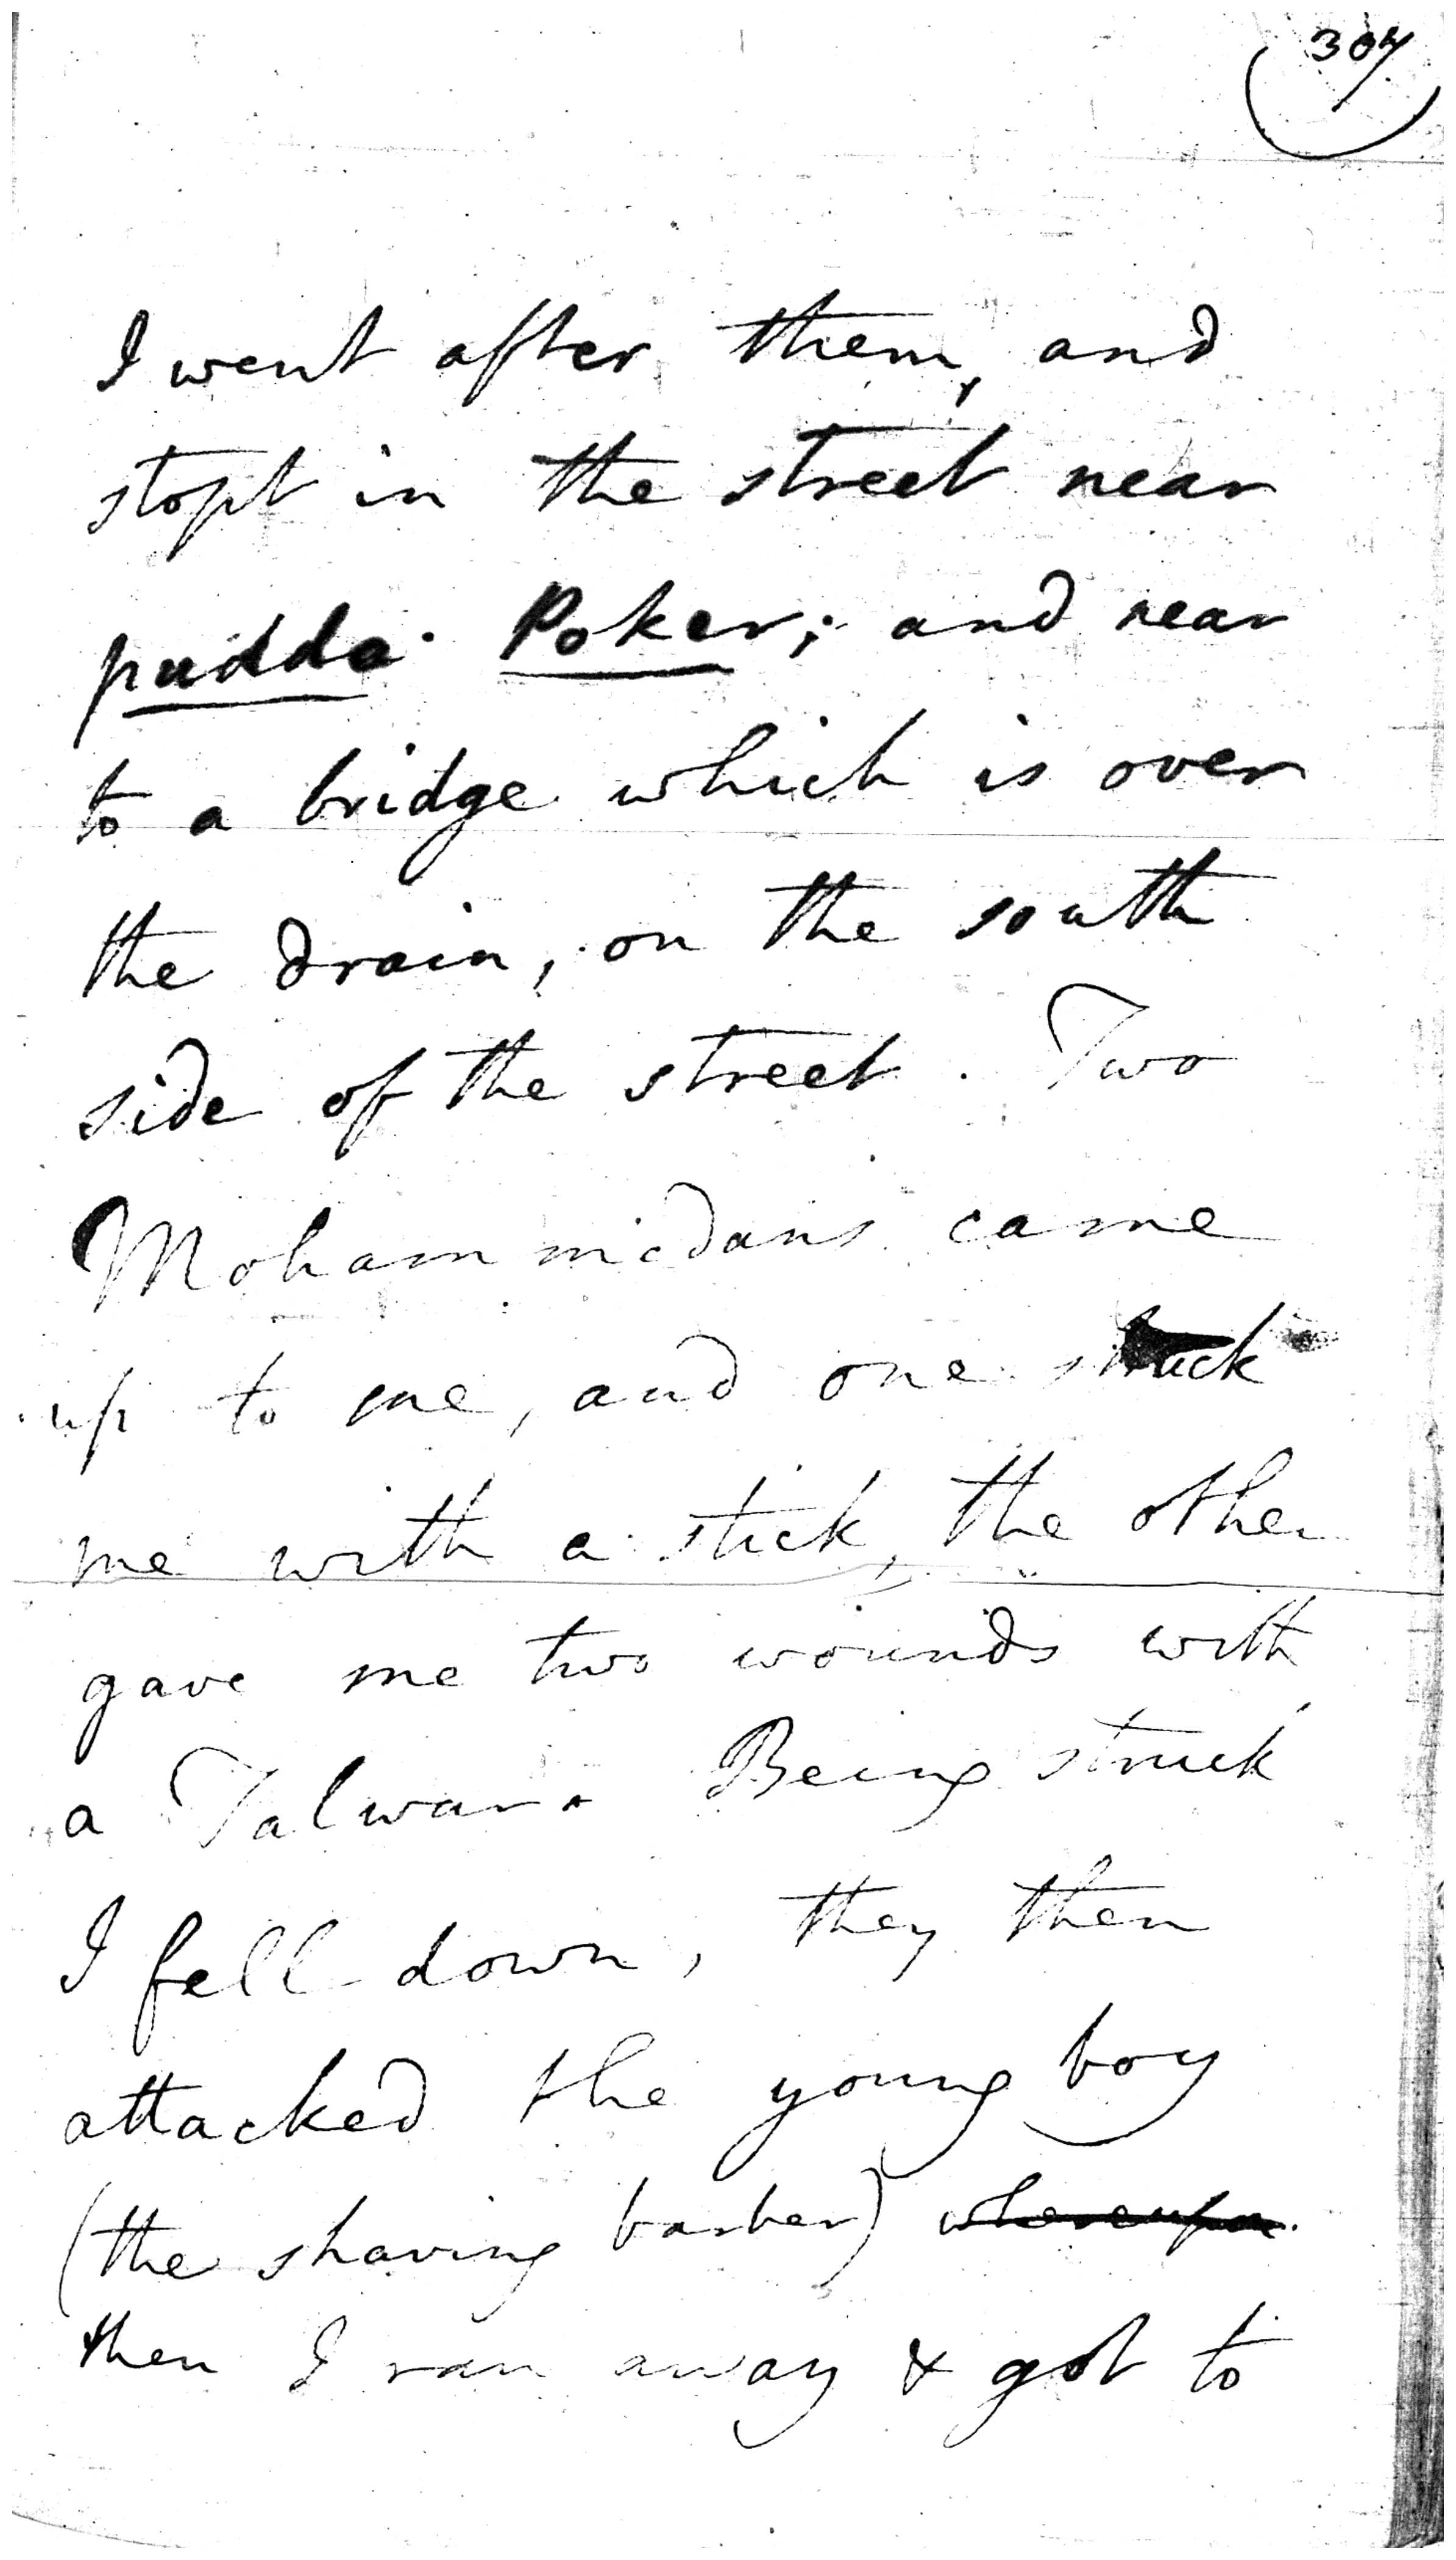 307
I went after them, and
stopt in the street near
pudda Poker; and near
to a bridge which is over
the drain, on the south
side of the street. Two
Mohammedans came
up to me, and one struck
me with a stick, the other
gave me two wounds with
a Talwar. Being struck
I fell down, they then
attacked the young boy
(the shaving barber) whereupon
then I ran away & got to